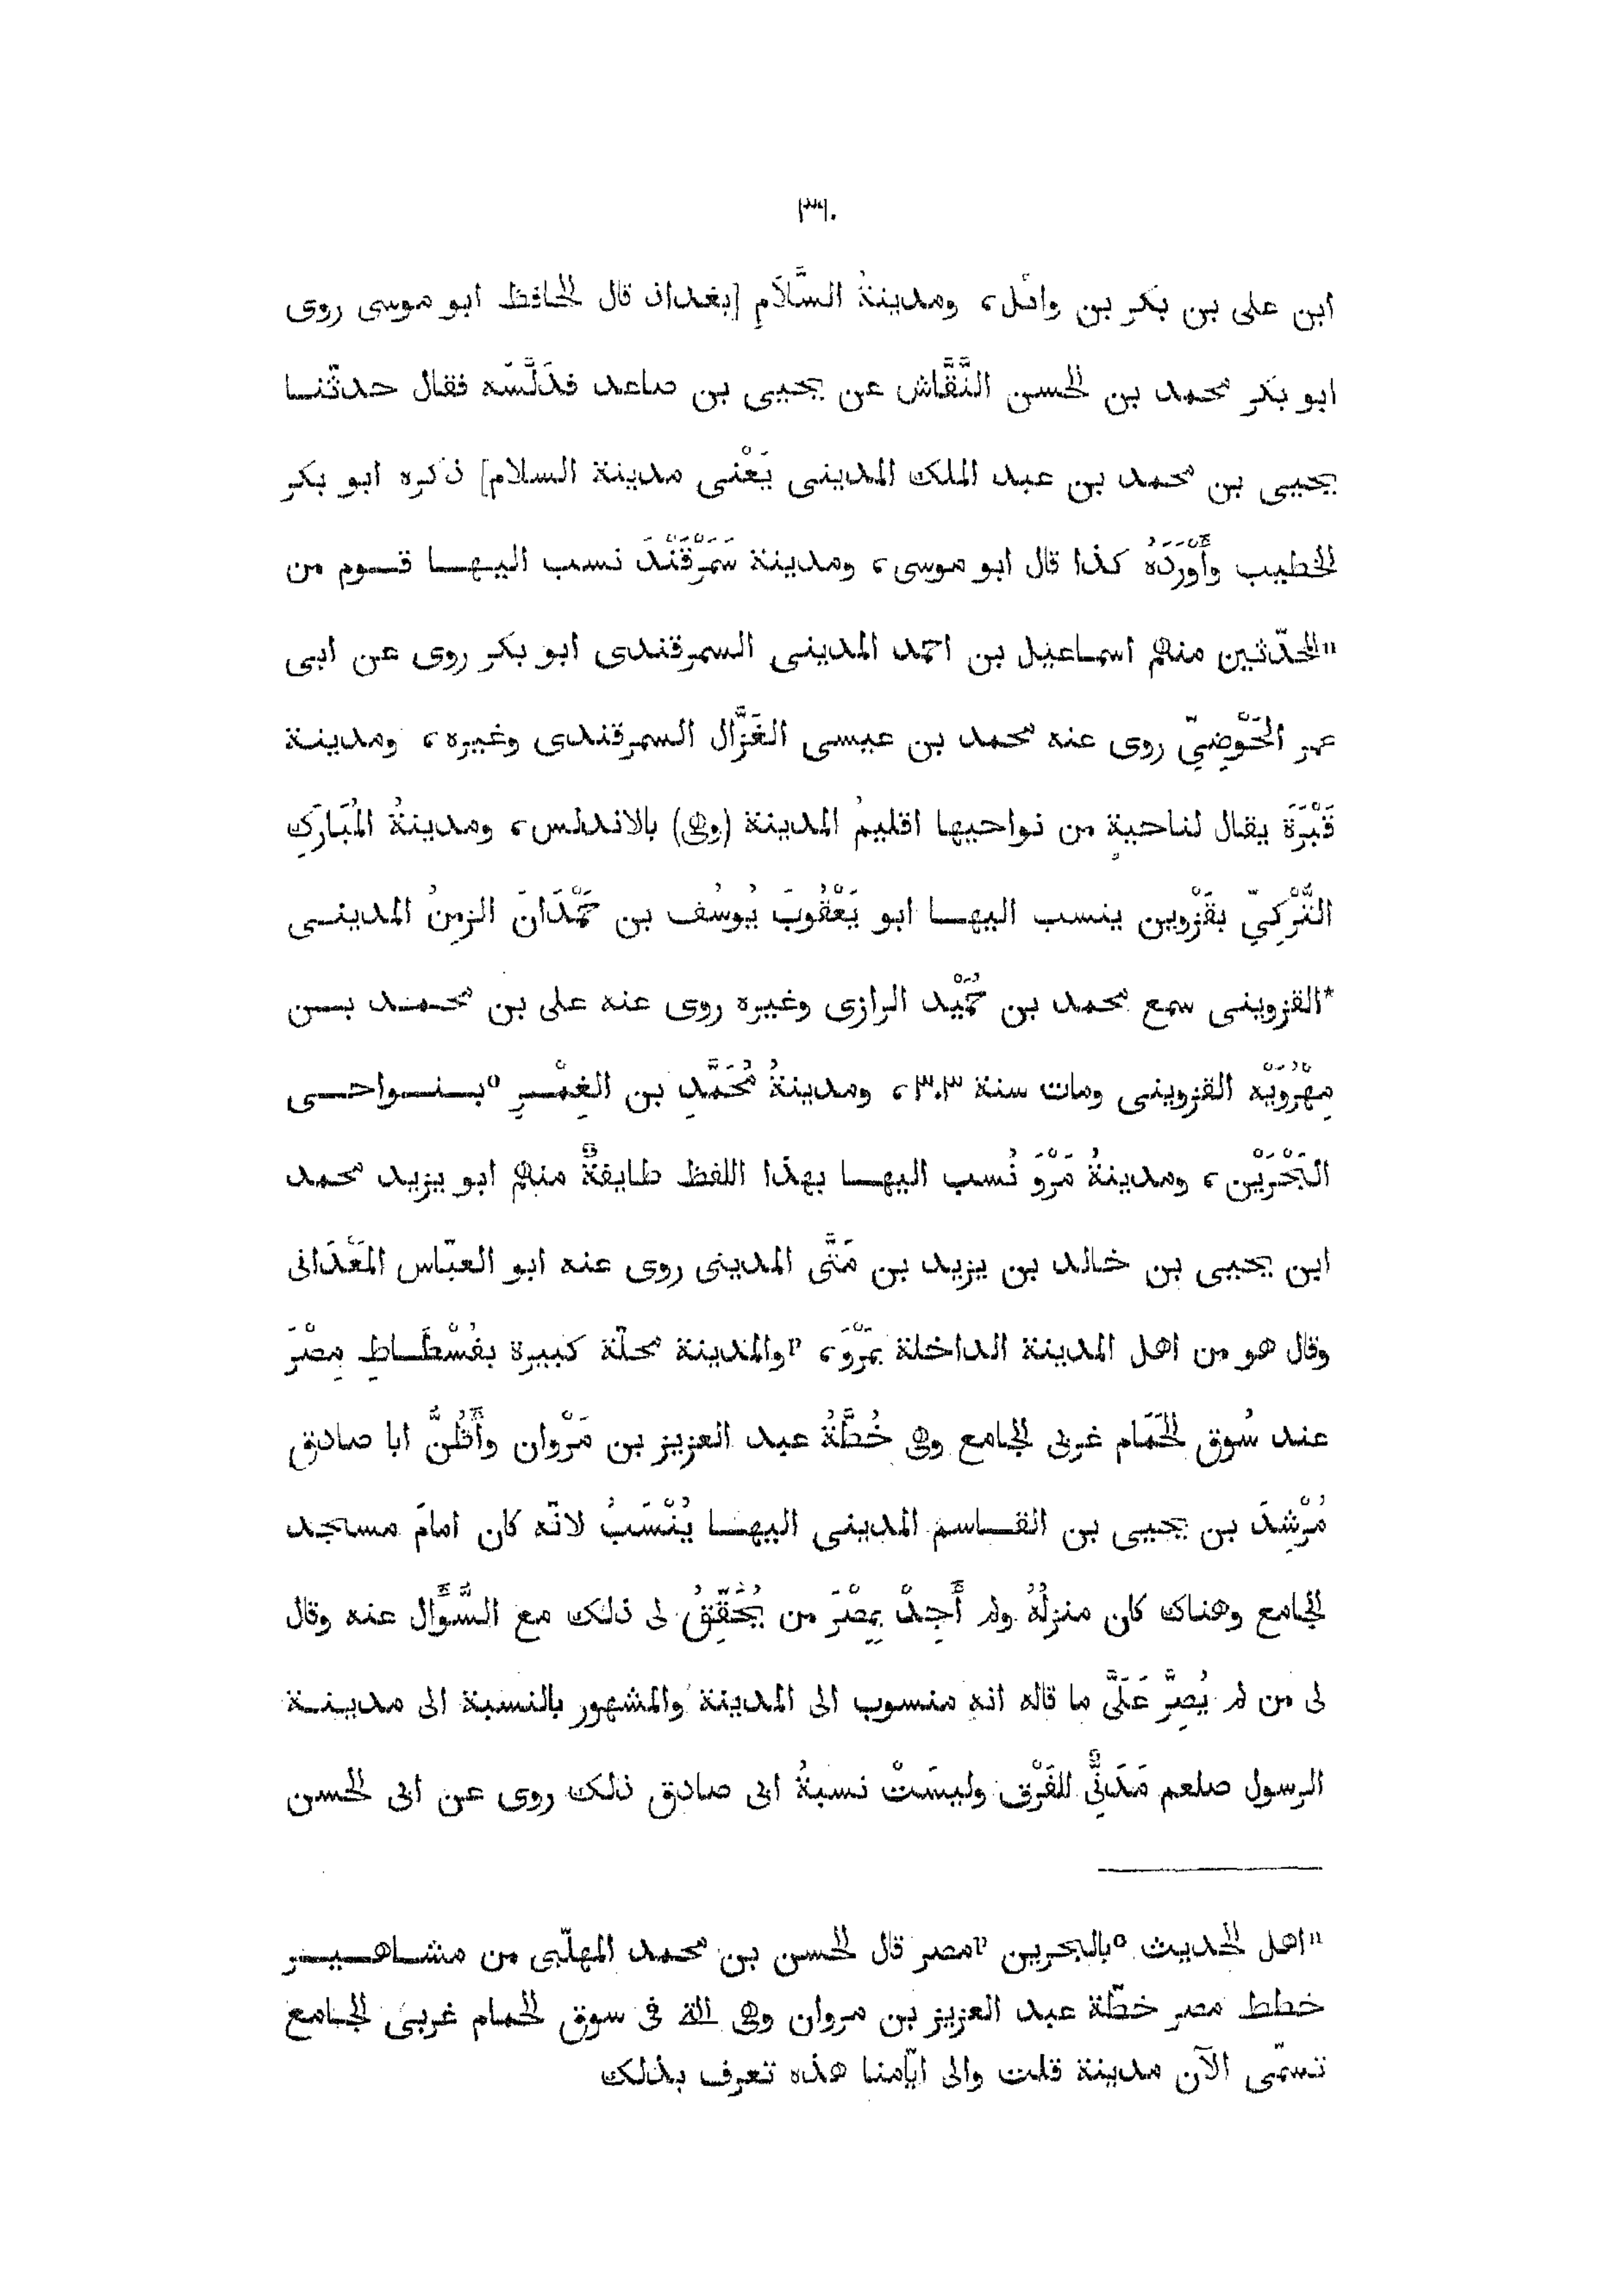 ٣٩٠
ابن على بن بَكر بن وائل، ومدينةُ السَّلَامِ [بغداذ قال الحافظ ابو موسى روى
ابو بَكر محمد بن الحسن النَّقَّاش عن يحيى بن صاعد فدَلَّسَه فقال حدثّنا
يحيى بن محمد بن عبد الملك المدينى يَعْنى مدينة السلام] ذكره ابو بكر
الخطيب وأَوْرَدَهُ كذا قال ابو موسى، ومدينة سَمَرْقَنْدَ نسب اليها قوم من
"المحدّثين منهم اسماعيل بن احمد المدينى السمرقندى ابو بكر روى عن ابى
عمر الحَوْضِيّ روى عنه محمد بن عيسى الغَزَّال السمرقندى وغيره، ومدينة
قَبْرَةَ يقال لناحيةٍ من نواحيها اقليمُ المدينة (وهى) بالاندلس، ومدينةُ المُبَارَكِ
التُّرْكِيّ بقَزْوين ينسب اليها ابو يَعْقُوبَ يُوسُف بن حَمْدَانَ الزمِنُ المدينى
*القزوينى سمع محمد بن حُمَيْد الرازى وغيره روى عنه على بن محمد بن
مِهْرُوَيْه القزوينى ومات سنة ٣٠٣، ومدينةُ مُحَمَّدِ بن الغِمْرِ °بنواحى
البَحْرَيْن، ومدينةُ مَرْوَ نُسب اليها بهذا اللفظ طايفةٌ منهم ابو يزيد محمد
ابن يحيى بن خالد بن يزيد بن مَتَّى المدينى روى عنه ابو العبّاس المَعْدَانى
وقال هو من اهل المدينة الداخلة بمَرْوَ، "والمدينة محلّة كبيرة بفُسْطَاطِ مِصْرَ
عند سُوق الحَمَام غربى الجامع وهى خُطَّةُ عبد العزيز بن مَرْوان وأَظُنُّ ابا صادق
مُرْشِدَ بن يحيى بن القاسم المدينى اليها يُنْسَبُ لانّه كان امامَ مسجد
الجامع وهناك كان منزلُهُ ولم أَجِدْ بِمِصْرَ من يُحَقِّقُ لى ذلك مع السُّؤَال عنه وقال
لى من لم يُصِرَّ عَلَىَّ ما قاله انه منسوب الى المدينة والمشهور بالنسبة الى مدينة
الرسول صلعم مَدَنِىٌّ للفَرْق وليسَتْ نسبةُ ابى صادق ذلك روى عن ابى الحسن
"اهل الحديث °بالبحرين "مصر قال الحسن بن محمد المهلّبى من مشاهير
خطط مصر خطّة عبد العزيز بن مروان وهى التى فى سوق الحمام غربىّ الجامع
تسمّى الآن مدينة قلت والى ايّامنا هذه تعرف بذلك